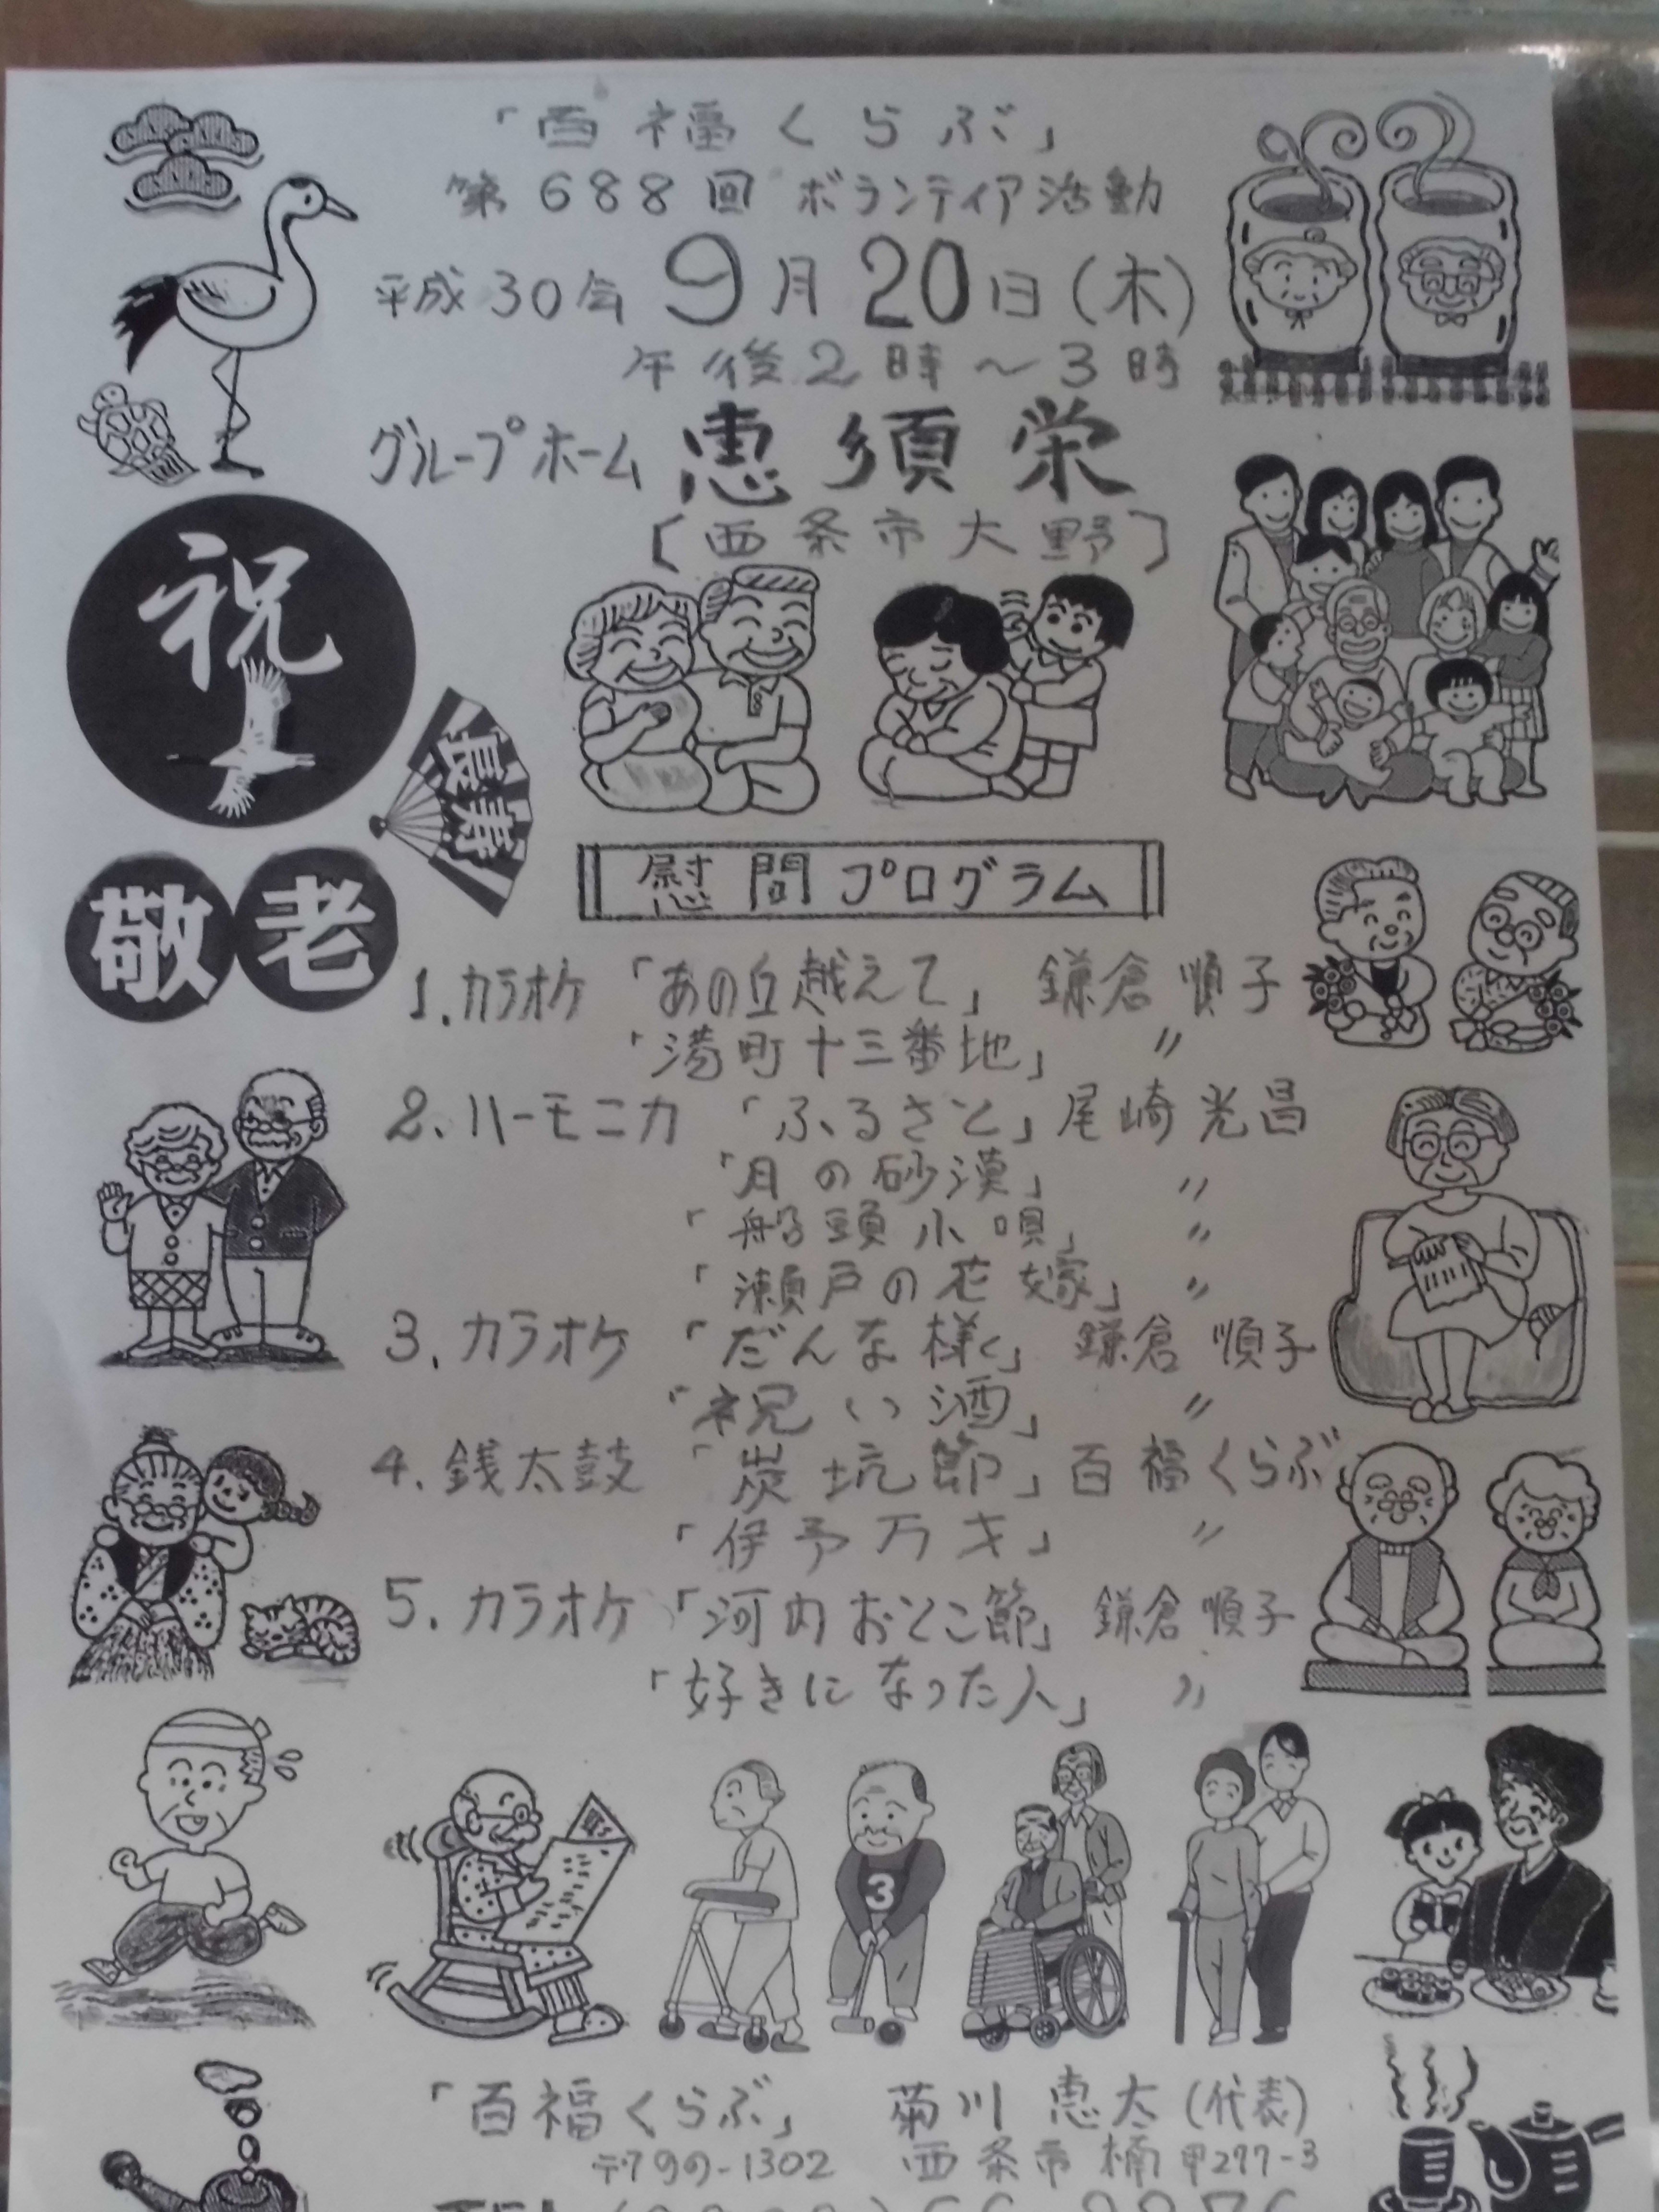 「百福くらぶ」
第688回 ボランティア活動
平成30年 9月20日(木)
午後2時～3時
グループホーム 恵須栄
[西条市大野]
祝
長寿
敬老
慰問プログラム
1. カラオケ 「あの丘越えて」 鎌倉 順子
「港町十三番地」 〃
2. ハーモニカ 「ふるさと」 尾崎 光昌
「月の砂漠」 〃
「船頭小唄」 〃
「瀬戸の花嫁」 〃
3. カラオケ 「だんな様」 鎌倉 順子
「祝い酒」 〃
4. 銭太鼓 「炭坑節」 百福くらぶ
「伊予万才」 〃
5. カラオケ 「河内おとこ節」 鎌倉 順子
「好きになった人」 〃
3
「百福くらぶ」 菊川 恵太 (代表)
〒799-1302 西条市楠甲277-3